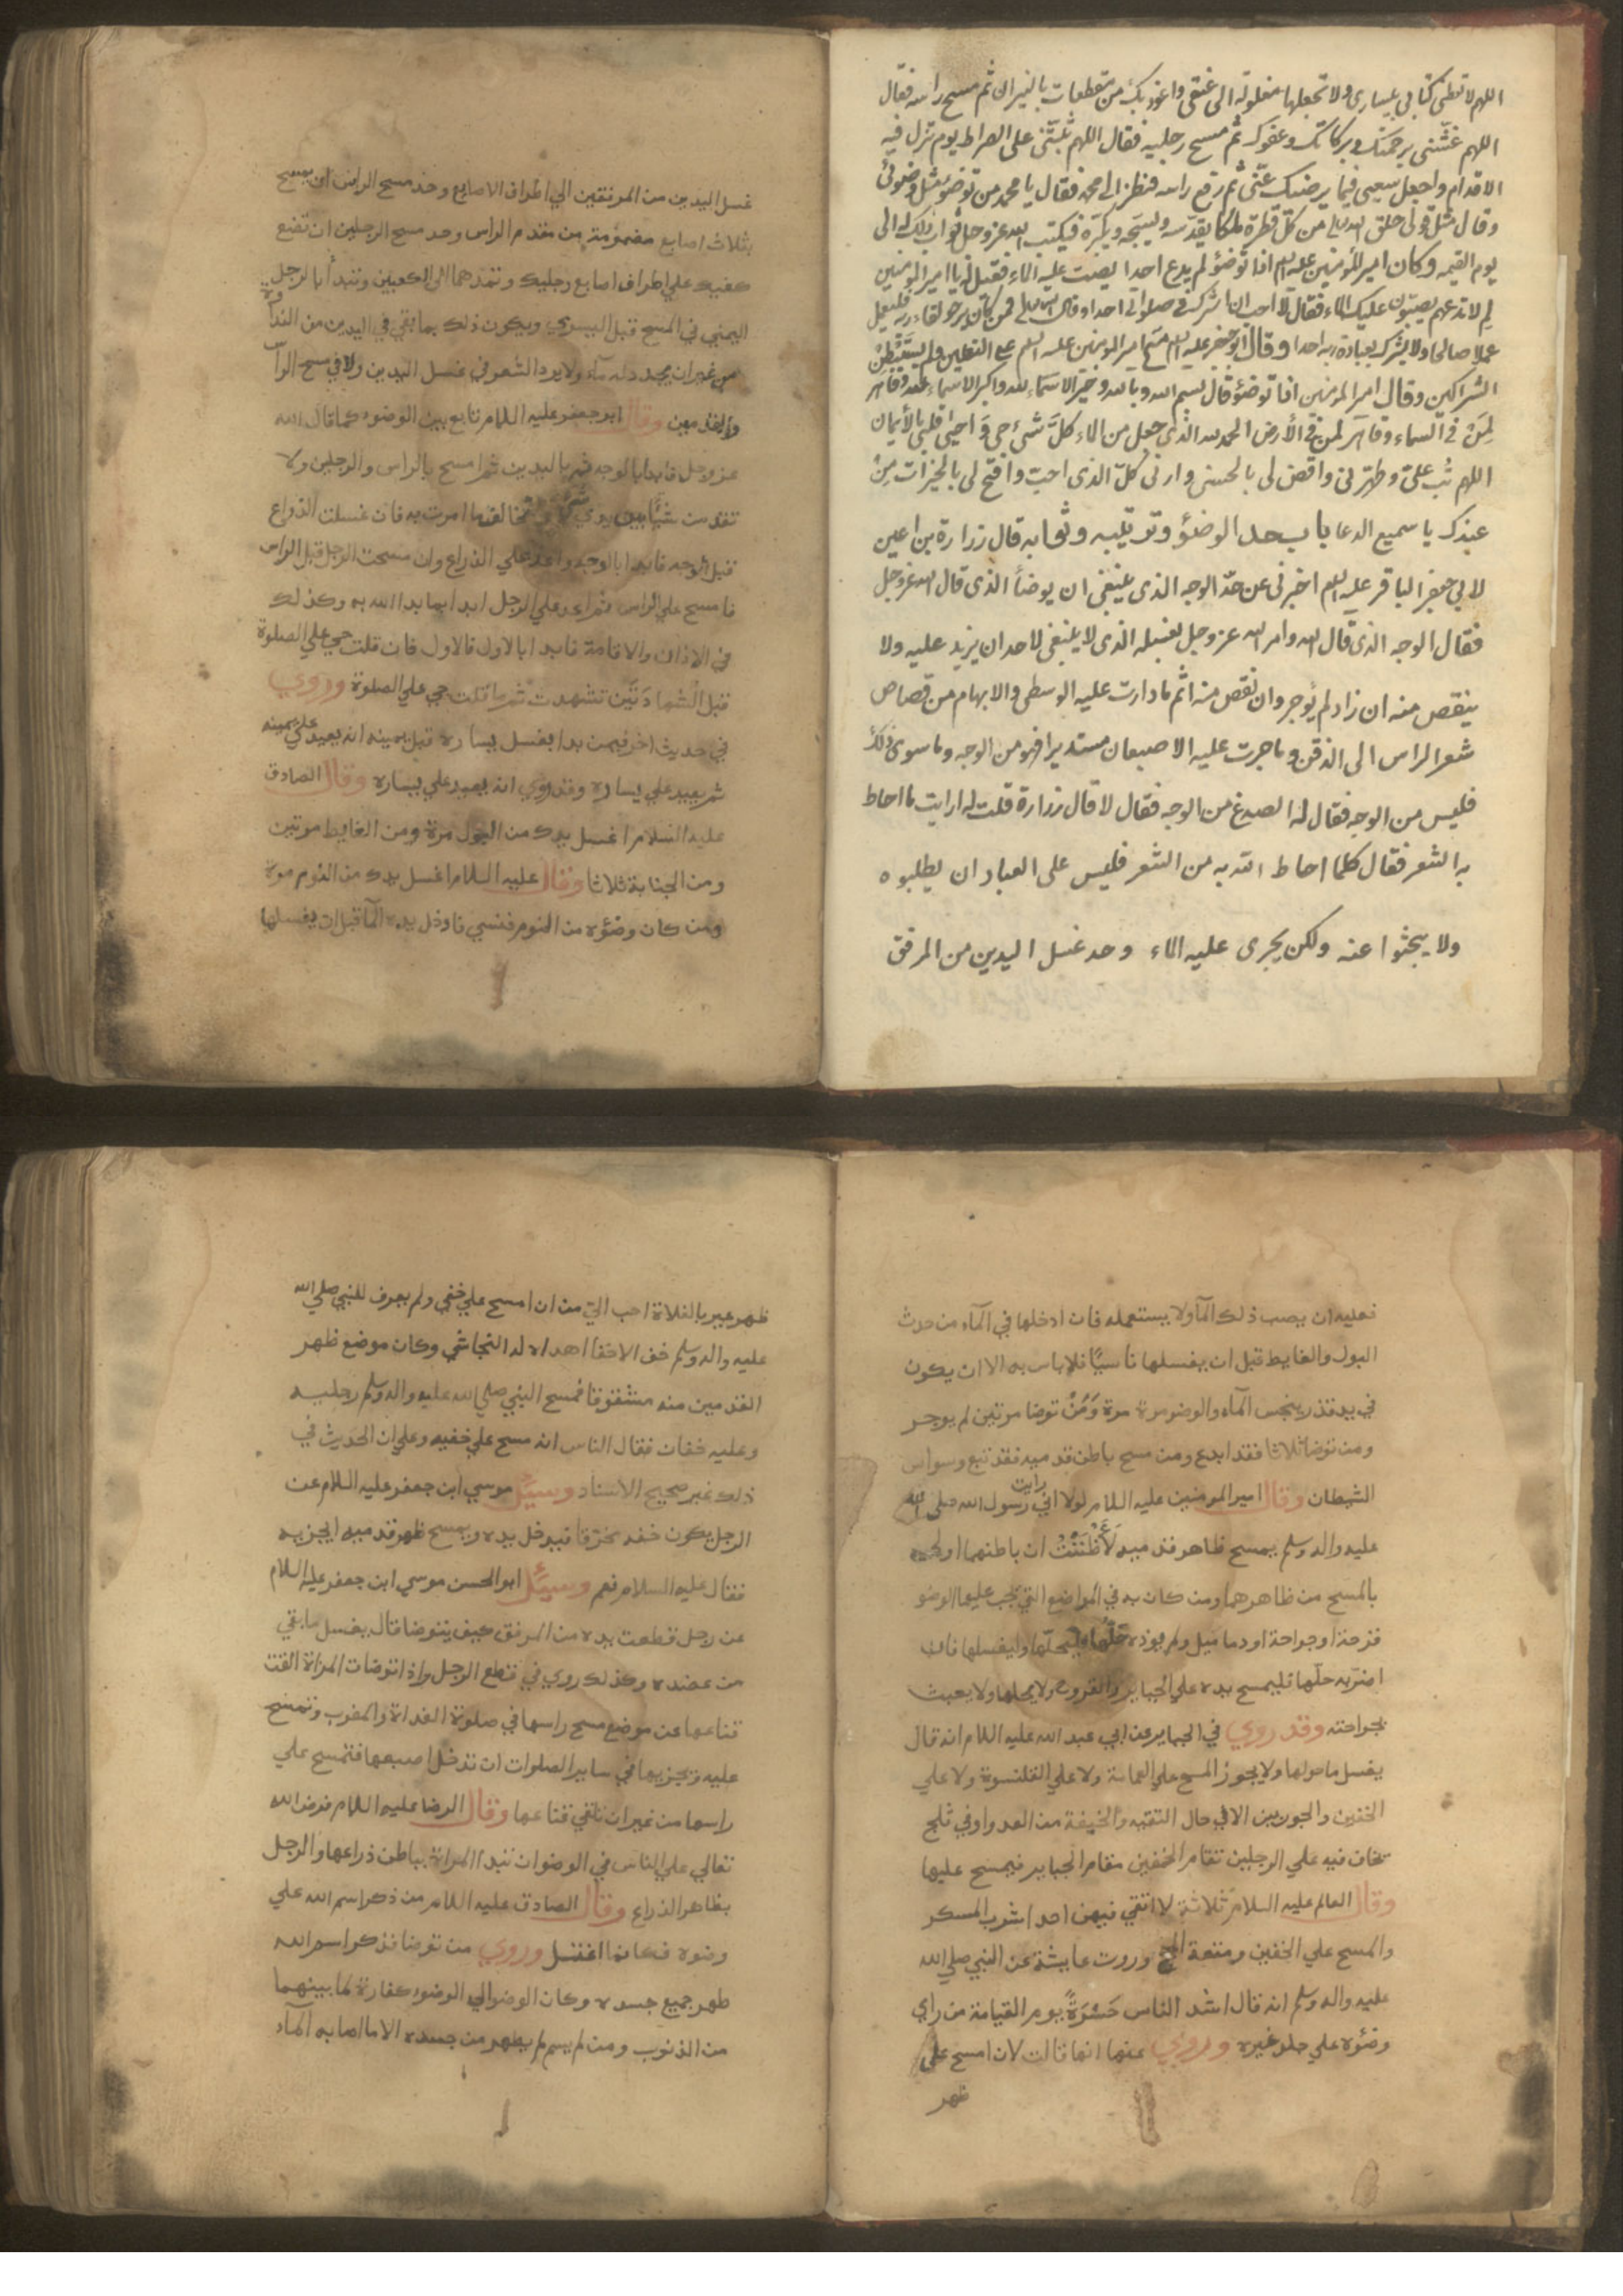 اللهم لا تعطنى كتابى بيسارى ولا تجعلها مغلولة الى عنقى واعوذ بك من مقطعات النيران ثم مسح راسه فقال
اللهم غشّنى برحمتك وبركاتك وعفوك ثم مسح رجليه فقال اللهم ثبّتنى على الصراط يوم تزل فيه
الاقدام واجعل سعيى فيما يرضيك عنّى ثم رفع راسه فنظر الى محمد فقال يا محمد من توضؤ مثل وضوئى
وقال مثل قولى خلق الله له من كل قطرة ملكا يقدّسه ويسبّحه ويكبّره فيكتب الله عز وجل ثواب ذلك له الى
يوم القيمه وكان امير المؤمنين عليه السلم اذا توضؤ لم يدع احدا يصبّ عليه الماء فقيل له يا امير المؤمنين
لم لا تدعهم يصبّون عليك الماء فقال لا احب ان اشرك فى صلوتى احدا وقال الله تعالى فمن كان يرجو لقاء ربه فليعمل
عملا صالحا ولا يشرك بعبادة ربه احدا وقال ابو جعفر عليه السلم مسح امير المؤمنين عليه السلم على النعلين ولم يستبطن
الشراكين وقال امير المؤمنين اذا توضؤ قال بسم الله وبالله وخير الاسماء لله واكبر الاسماء لله وقاهر
لمن فى السماء وقاهر لمن فى الأرض الحمد لله الذى جعل من الماء كلّ شىء حى واحيى قلبى بالأيمان
اللهم تُب علىّ وطهّرنى واقض لى بالحسنى وارنى كلّ الذى احبّ وافتح لى بالخيرات من
عندك يا سميع الدعا باب حد الوضؤ وترتيبه وثوابه قال زرارة بن اعين
لابى جعفر الباقر عليه السلم اخبرنى عن حدّ الوجه الذى ينبغى ان يوضأ الذى قال الله عز وجل
فقال الوجه الذى قال الله وامر الله عز وجل بغسله الذى لا ينبغى لاحد ان يزيد عليه ولا
ينقص منه ان زاد لم يؤجر وان نقص منه اثم ما دارت عليه الوسطى والابهام من قصاص
شعر الراس الى الذقن وما جرت عليه الاصبعان مستديرا فهو من الوجه وما سوى ذلك
فليس من الوجه فقال له الصدغ من الوجه فقال لا قال زرارة قلت له ارايت ما احاط
به الشعر فقال كلما احاط الله به من الشعر فليس على العباد ان يطلبوه
ولا يبحثوا عنه ولكن يجرى عليه الماء وحد غسل اليدين من المرفق
غسل اليدين من المرفقين الي اطراف الاصابع وحد مسح الراس ان يمسح
بثلاث اصابع مضمومة من مقدم الراس وحد مسح الرجلين ان تضع
كفيك علي اطراف اصابع رجليك وتمدهما الي الكعبين وتبدأ بالرجل
اليمني في المسح قبل اليسري ويكون ذلك بما بقي في اليدين من النداوة
من غير ان يجدد له مآء ولا يرد الشعر في غسل اليدين ولا في مسح الرأ
والقدمين وقال ابو جعفر عليه السلام تابع بين الوضوء كما قال الله
عز وجل فابدا بالوجه ثم باليدين ثم امسح بالراس والرجلين ولا
تقدمن شيئا بين يدي شيء تخالف ما امرت به فان غسلت الذراع
قبل الوجه فابدا بالوجه واعد علي الذراع وان مسحت الرجل قبل الراس
فامسح علي الراس ثم اعد علي الرجل ابدا بما بدا الله به وكذلك
في الاذان والاقامة فابدا بالاول فالاول فان قلت حي علي الصلوة
قبل الشهادتين تشهدت ثم قلت حي علي الصلوة وروي
في حديث اخر فيمن بدا بغسل يساره قبل يمينه انه يعيد علي يمينه
ثم يعيد علي يساره وقد روي انه يعيد علي يساره وقال الصادق
عليه السلام اغسل يدك من البول مرة ومن الغايط مرتين
ومن الجنابة ثلاثا وقال عليه السلام اغسل يدك من النوم مرة
ومن كان وضؤه من النوم فنسي فادخل يده المآ قبل ان يغسلها
فعليه ان يصب ذلك المآ ولا يستعمله فان ادخلها في المآء من حدث
البول والغايط قبل ان يغسلها ناسيًا فلا باس به الا ان يكون
في يده قذر ينجس المآء والوضو مرة مرة وَمَنْ توضا مرتين لم يوجر
ومن توضا ثلاثا فقد ابدع ومن مسح باطن قدميه فقد تبع وسواس
الشيطان وقال امير المومنين عليه السلام لولا اني رايت رسول الله صلى الله
عليه واله وسلم يمسح ظاهر قدميه لَأظْنَنْتُ ان باطنهما اولي
بالمسح من ظاهرهما ومن كان به في المواضع التي يجب عليها الوضو
قرحة او جراحة او دماميل ولم يوذه حلّها فليحلّها وليغسلها فان
اضرّ به حلّها فليمسح يده علي الجباير والقروح ولا يحلها ولا يعبث
بجراحته وقد روي في الجباير عن ابي عبد الله عليه السلام انه قال
يغسل ما حولها ولا يجوز المسح علي العمامة ولا علي القلنسوة ولا علي
الخفين والجوربين الا في حال التقيه والخيفة من العدو او في ثلج
تخاف فيه علي الرجلين تقام الخفين مقام الجباير فيمسح عليها
وقال العالم عليه السلام ثلاثة لا اتقي فيهن احدا شرب المسكر
والمسح علي الخفين ومتعة الحج وروت عايشة عن النبي صلي الله
عليه واله وسلم انه قال اشد الناس حَسْرَةً يوم القيامة من راي
وضؤه علي جلد غيره وروي عنها انها قالت لان امسح علي
ظهر
ظهر عير بالفلاة احب الي من ان امسح علي خفي ولم يعرف للنبي صلي الله
عليه واله وسلم خف الا خفا اهداه له النجاشي وكان موضع ظهر
القدمين منه مشقوقا فمسح النبي صلي الله عليه واله وسلم رجليه
وعليه خفان فقال الناس انه مسح علي خفيه وعلي ان الحديث في
ذلك غير صحيح الاسناد وسئل موسي ابن جعفر عليه السلام عن
الرجل يكون خفه مخرّقا فيدخل يده ويمسح ظهر قدميه ايجزيه
فقال عليه السلام نعم وسئل ابو الحسن موسي ابن جعفر عليه السلام
عن رجل قطعت يده من المرفق كيف يتوضا قال يغسل ما بقي
من عضده وكذلك روي في قطع الرجل واذا توضات المراة القت
قناعها عن موضع مسح راسها في صلوة الغداة والمغرب وتمسح
عليه ويجزيها في ساير الصلوات ان تدخل اصبعها فتمسح علي
راسها من غير ان تلقي قناعها وقال الرضا عليه السلام فرض الله
تعالي علي الناس في الوضو ان تبدا المراة بباطن ذراعها والرجل
بظاهر الذراع وقال الصادق عليه السلام من ذكر اسم الله علي
وضوه فكانما اغتسل وروي من توضا فذكر اسم الله
طهر جميع جسده وكان الوضو الي الوضو كفارة لما بينهما
من الذنوب ومن لم يسم لم يطهر من جسده الا ما اصابه المآء